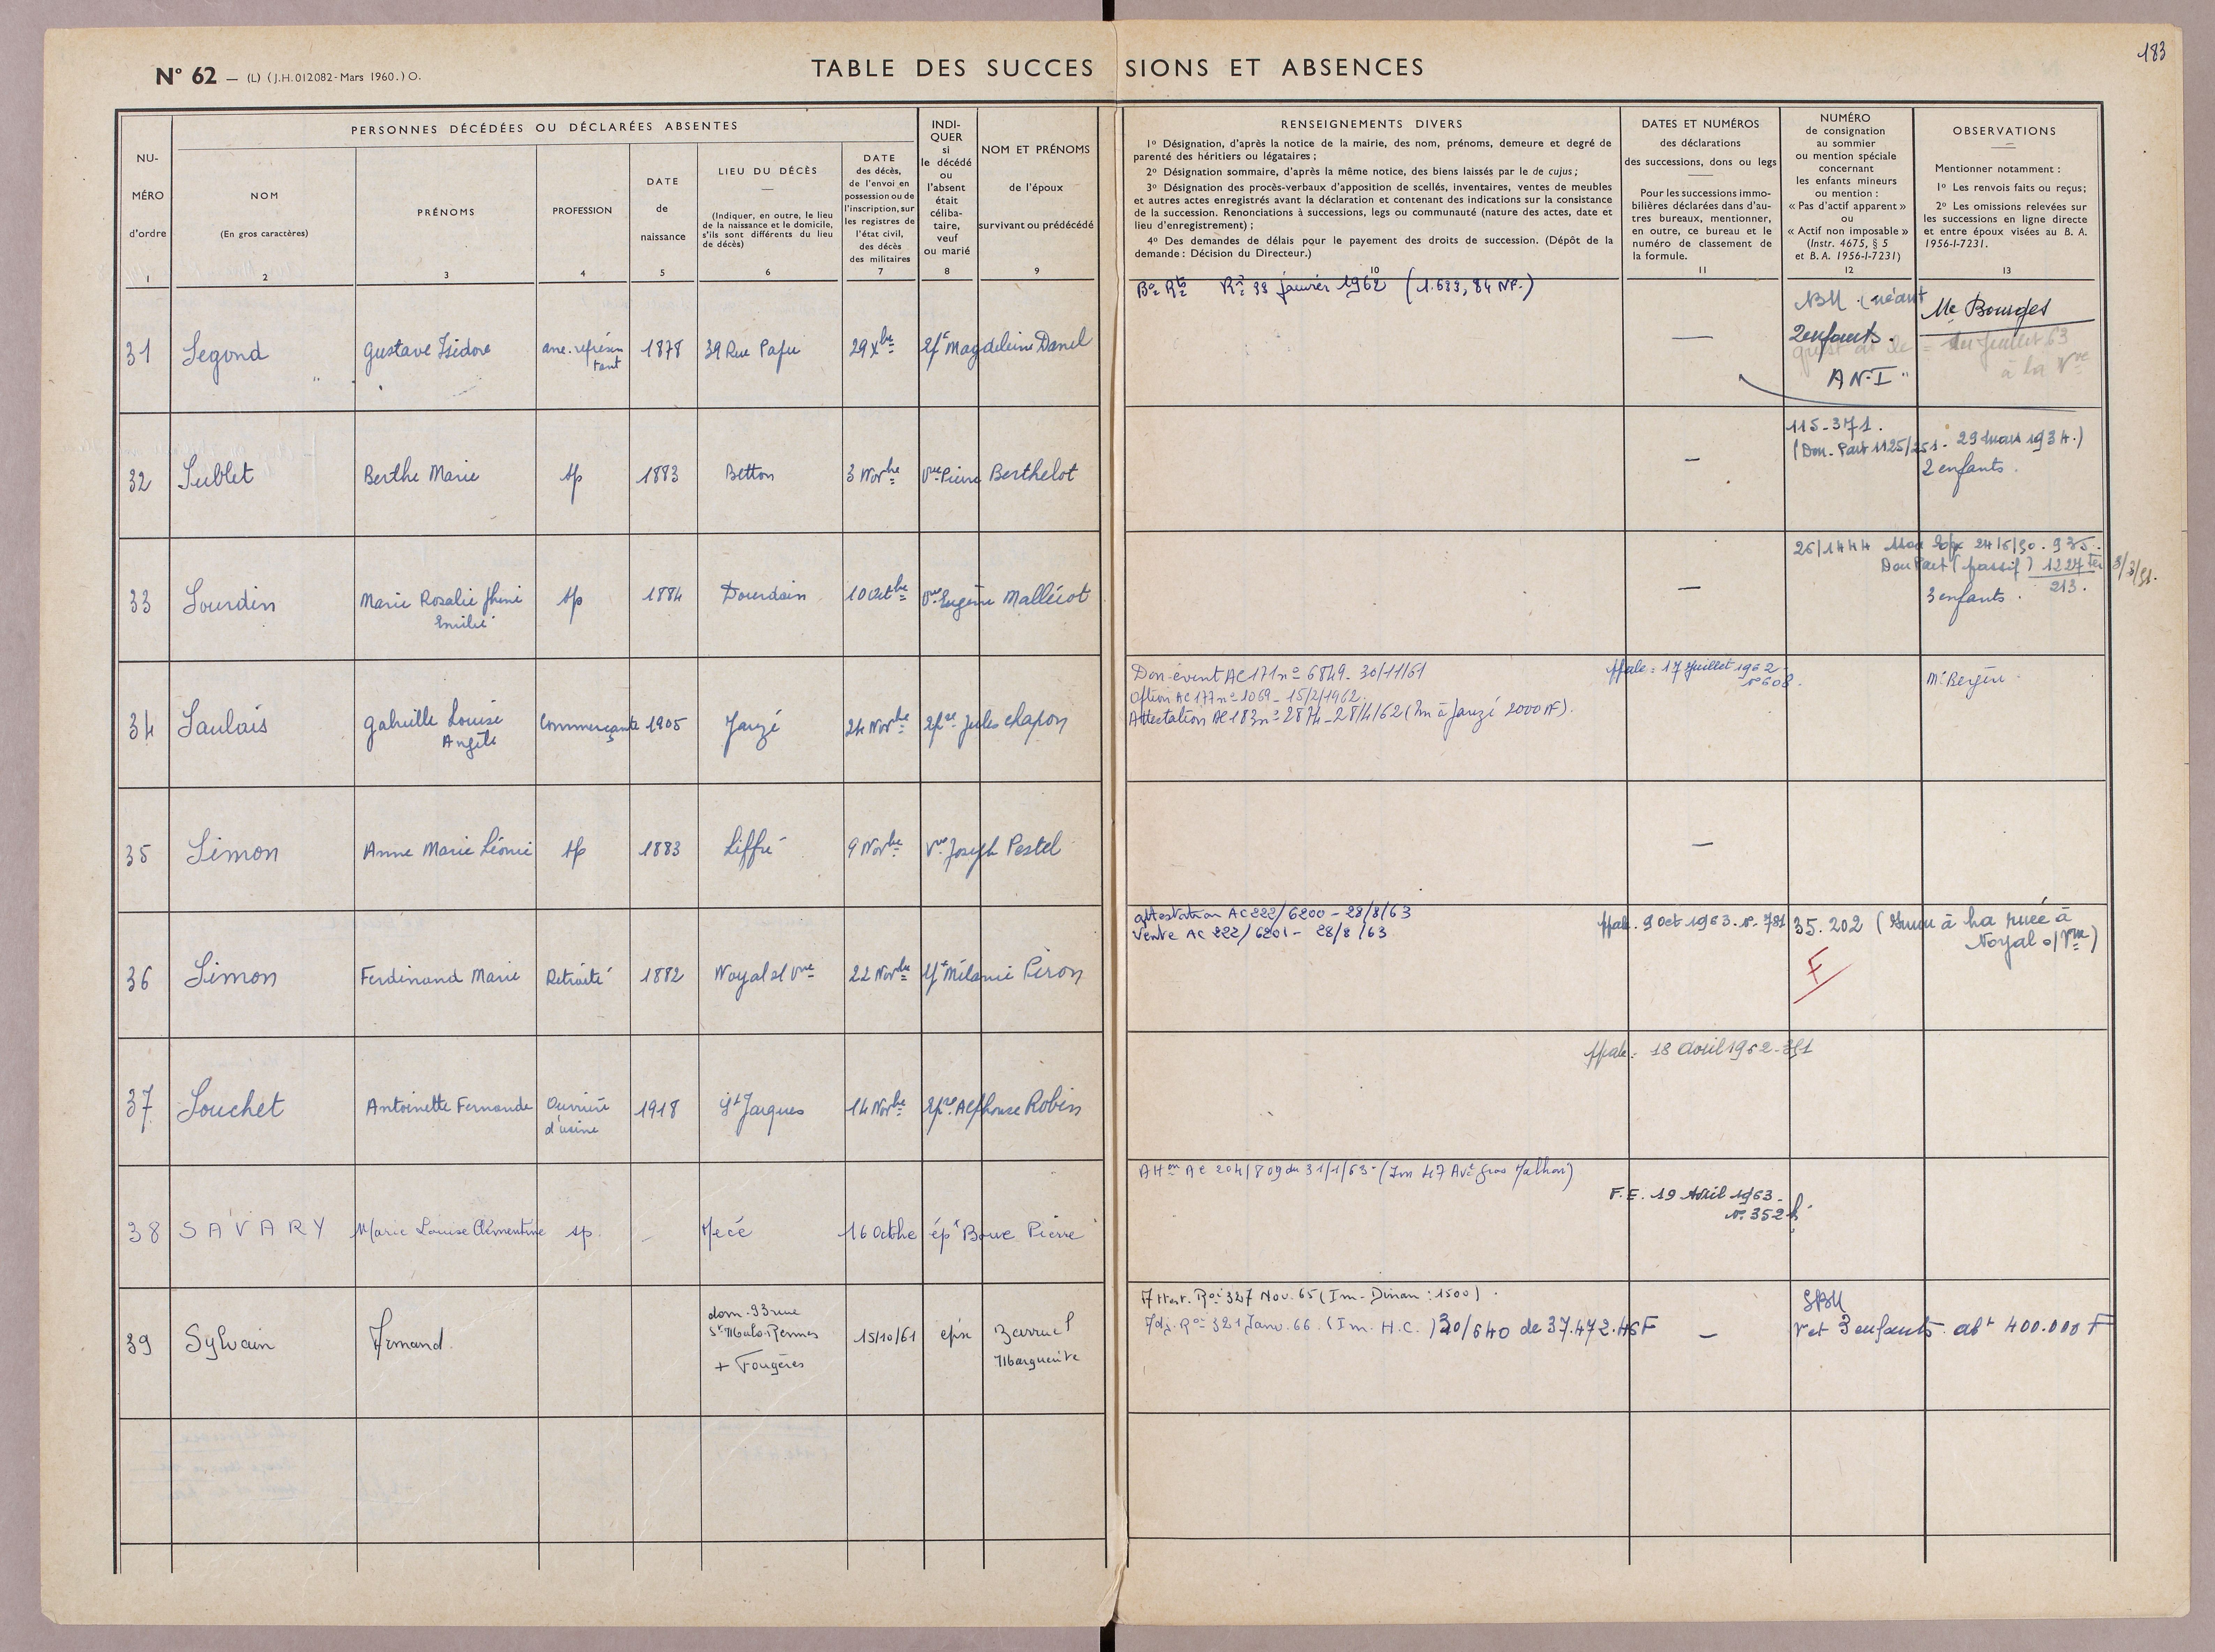 183
N° 62 — (L) (J.H. 012082 - Mars 1960.) O.
TABLE DES SUCCESSIONS ET ABSENCES
NU-
MÉRO
d'ordre
1
PERSONNES DÉCÉDÉES OU DÉCLARÉES ABSENTES
NOM
(En gros caractères)
2
PRÉNOMS
3
PROFESSION
4
DATE
de
naissance
5
LIEU DU DÉCÈS
—
(Indiquer, en outre, le lieu
de la naissance et le domicile,
s'ils sont différents du lieu
de décès)
6
DATE
des décès,
de l'envoi en
possession ou de
l'inscription, sur
les registres de
l'état civil,
des décès
des militaires
7
INDI-
QUER
si
le décédé
ou
l'absent
était
céliba-
taire,
veuf
ou marié
8
NOM ET PRÉNOMS
de l'époux
survivant ou prédécédé
9
RENSEIGNEMENTS DIVERS
1° Désignation, d'après la notice de la mairie, des nom, prénoms, demeure et degré de
parenté des héritiers ou légataires ;
2° Désignation sommaire, d'après la même notice, des biens laissés par le de cujus ;
3° Désignation des procès-verbaux d'apposition de scellés, inventaires, ventes de meubles
et autres actes enregistrés avant la déclaration et contenant des indications sur la consistance
de la succession. Renonciations à successions, legs ou communauté (nature des actes, date et
lieu d'enregistrement) ;
4° Des demandes de délais pour le payement des droits de succession. (Dépôt de la
demande : Décision du Directeur.)
10
DATES ET NUMÉROS
des déclarations
des successions, dons ou legs
Pour les successions immo-
bilières déclarées dans d'au-
tres bureaux, mentionner,
en outre, ce bureau et le
numéro de classement de
la formule.
11
NUMÉRO
de consignation
au sommier
ou mention spéciale
concernant
les enfants mineurs
ou mention :
« Pas d'actif apparent »
ou
« Actif non imposable »
(Instr. 4675, § 5
et B. A. 1956-I-7231)
12
OBSERVATIONS
Mentionner notamment :
1° Les renvois faits ou reçus;
2° Les omissions relevées sur
les successions en ligne directe
et entre époux visées au B. A.
1956-I-7231.
13
31 Segond Gustave Isidore anc. représen tant 1878 39 Rue Papu 29 Xbre Magdeleine Danel
janvier 1962 —
2 enfants.
A N-I
Me Bourges
juillet 63
à la Vve
32 Sublet Berthe Marie sp 1883 Betton 3 Novbre Vve Pierre Berthelot
—
115-371.
29 mars 1934.)
2 enfants.
33 Sourdin Marie Rosalie
Emilie sp 1884 Dourdain 10 Octbre Vve Eugène
—
26/1444 24/6/30. 935.
Don Part (passif) 1227 ter 3/3/31.
3 enfants. 213.
34 Saulais Gabrielle Louise
Angèle Commerçante 1905 Janzé 24 Novbre Jules Chapon
Don évent AC 171 n° 6849 - 30/11/61
Option AC 177 n° 1069 - 15/2/1962.
Attestation AC 183 n° 2874 - 28/4/62 (Im à Janzé 2000 NF).
17 Juillet 1962
n° 608.
35 Simon Anne Marie Léonie sp 1883 Liffré 9 Novbre Vve Joseph Pestel
—
36 Simon Ferdinand Marie Retraité 1882 Noyal s/ Vne 22 Novbre Mélanie Piron
attestation AC 222/6200 - 28/8/63
Vente AC 222/6201 - 28/8/63
9 Oct 1963. n° 781
35.202
Noyal s/Vne)
F
37 Souchet Antoinette Fernande Ouvrière
d'usine 1918 St Jacques 14 Novbre Alphonse Robin
18 Avril 1962
38 SAVARY Marie Louise Clémentine sp. Mecé 16 Octbre Pierre
Atton AC 204/809 du 31/1/63
F.E. 19 Avril 1963-
n° 352
39 Sylvain Armand
dom. 93 rue
St Malo-Rennes
+ Fougères
15/10/61 épx
Barruel
Marguerite
Attest. Roi 327 Nov. 65 (Im- Dinan : 1500).
Adj. Roi 321 Janv. 66. (Im. H.C.) 30/640 de 37.472.45F
—
SBM
V et 3 enfants abt 400.000 F